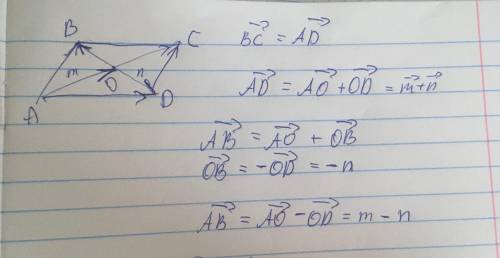 B C
m O n
A D
BC⃗ = AD⃗
AD⃗ = AO⃗ + OD⃗ = m⃗+n⃗
AB⃗ = AO⃗ + OB⃗
OB⃗ = -OD⃗ = -n
AB⃗ = AO⃗ - OD⃗ = m - n